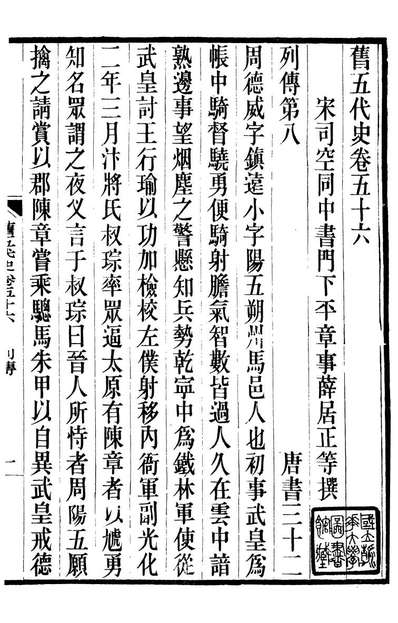 舊五代史卷五十六
宋司空同中書門下平章事薛居正等撰
列傳第八 唐書三十二
周德威字鎮遠小字陽五朔州馬邑人也初事武皇爲
帳中騎督驍勇便騎射膽氣智數皆過人久在雲中諳
熟邊事望烟塵之警懸知兵勢乾寧中爲鐵林軍使從
武皇討王行瑜以功加檢校左僕射移內衙軍副光化
二年三月汴將氏叔琮率眾逼太原有陳章者以虓勇
知名眾謂之夜乂言于叔琮曰晉人所恃者周陽五願
擒之請賞以郡陳章嘗乘驄馬朱甲以自異武皇戒德
舊五代史卷五十六 列傳 一